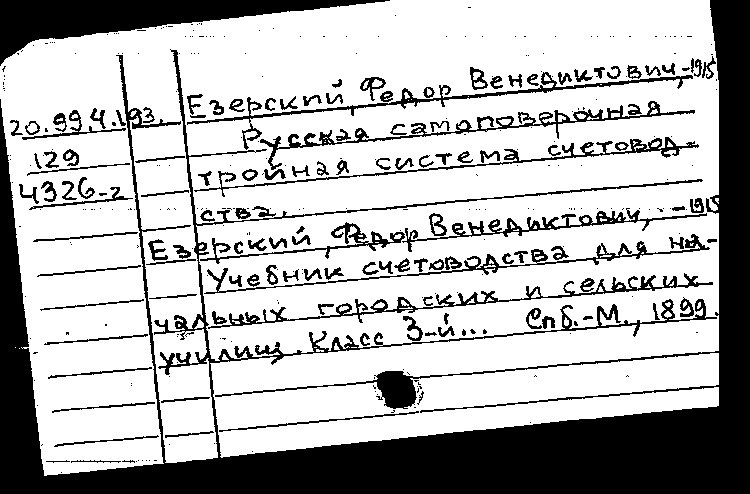 Езерский, Федор Венедиктович, -1915
20.99.4.193.
Русская самоповерочная
129
тройная система счетовод-
4326-2
ства.
Езерский, Федор Венедиктович, -1915
Учебник счетоводства для на-
чальных городских и сельских
училищ. Класс 3-й... Спб.-М., 1899.